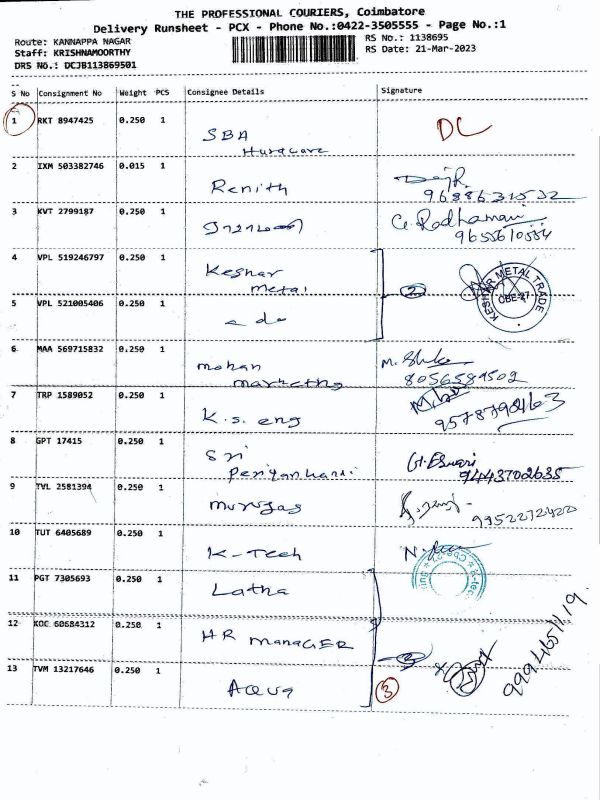 THE PROFESSIONAL COURIERS, Coimbatore
Delivery Runsheet - PCX - Phone No.:0422-3505555 - Page No.:1
Route: KANNAPPA NAGAR
Staff: KRISHNAMOORTHY
DRS No.: DCJB113869501
RS No.: 1138695
RS Date: 21-Mar-2023
S No Consignment No Weight PCS Consignee Details Signature
1 RKT 8947425 0.250 1 SBA DC
2 IXM 503382746 0.015 1 Renith
3 KVT 2799187 0.250 1 G Radhamani
4 VPL 519246797 0.250 1 Keshar
metal
2
KESHAR METAL TRADE
CBE-27
5 VPL 521005406 0.250 1 - do
6 MAA 569715832 0.250 1 mohan
marketing
8056584502
7 TRP 1589052 0.250 1 K.s. eng
9578790463
8 GPT 17415 0.250 1 Sri
G. Eswari
9443702635
9 TVL 2581394 0.250 1 murugas
9952272420
10 TUT 6405689 0.250 1 K-Tech
11 PGT 7305693 0.250 1 Latha
12 KOC 60684312 0.250 1 HR manaGER
3
13 TVM 13217646 0.250 1 AQUA
3